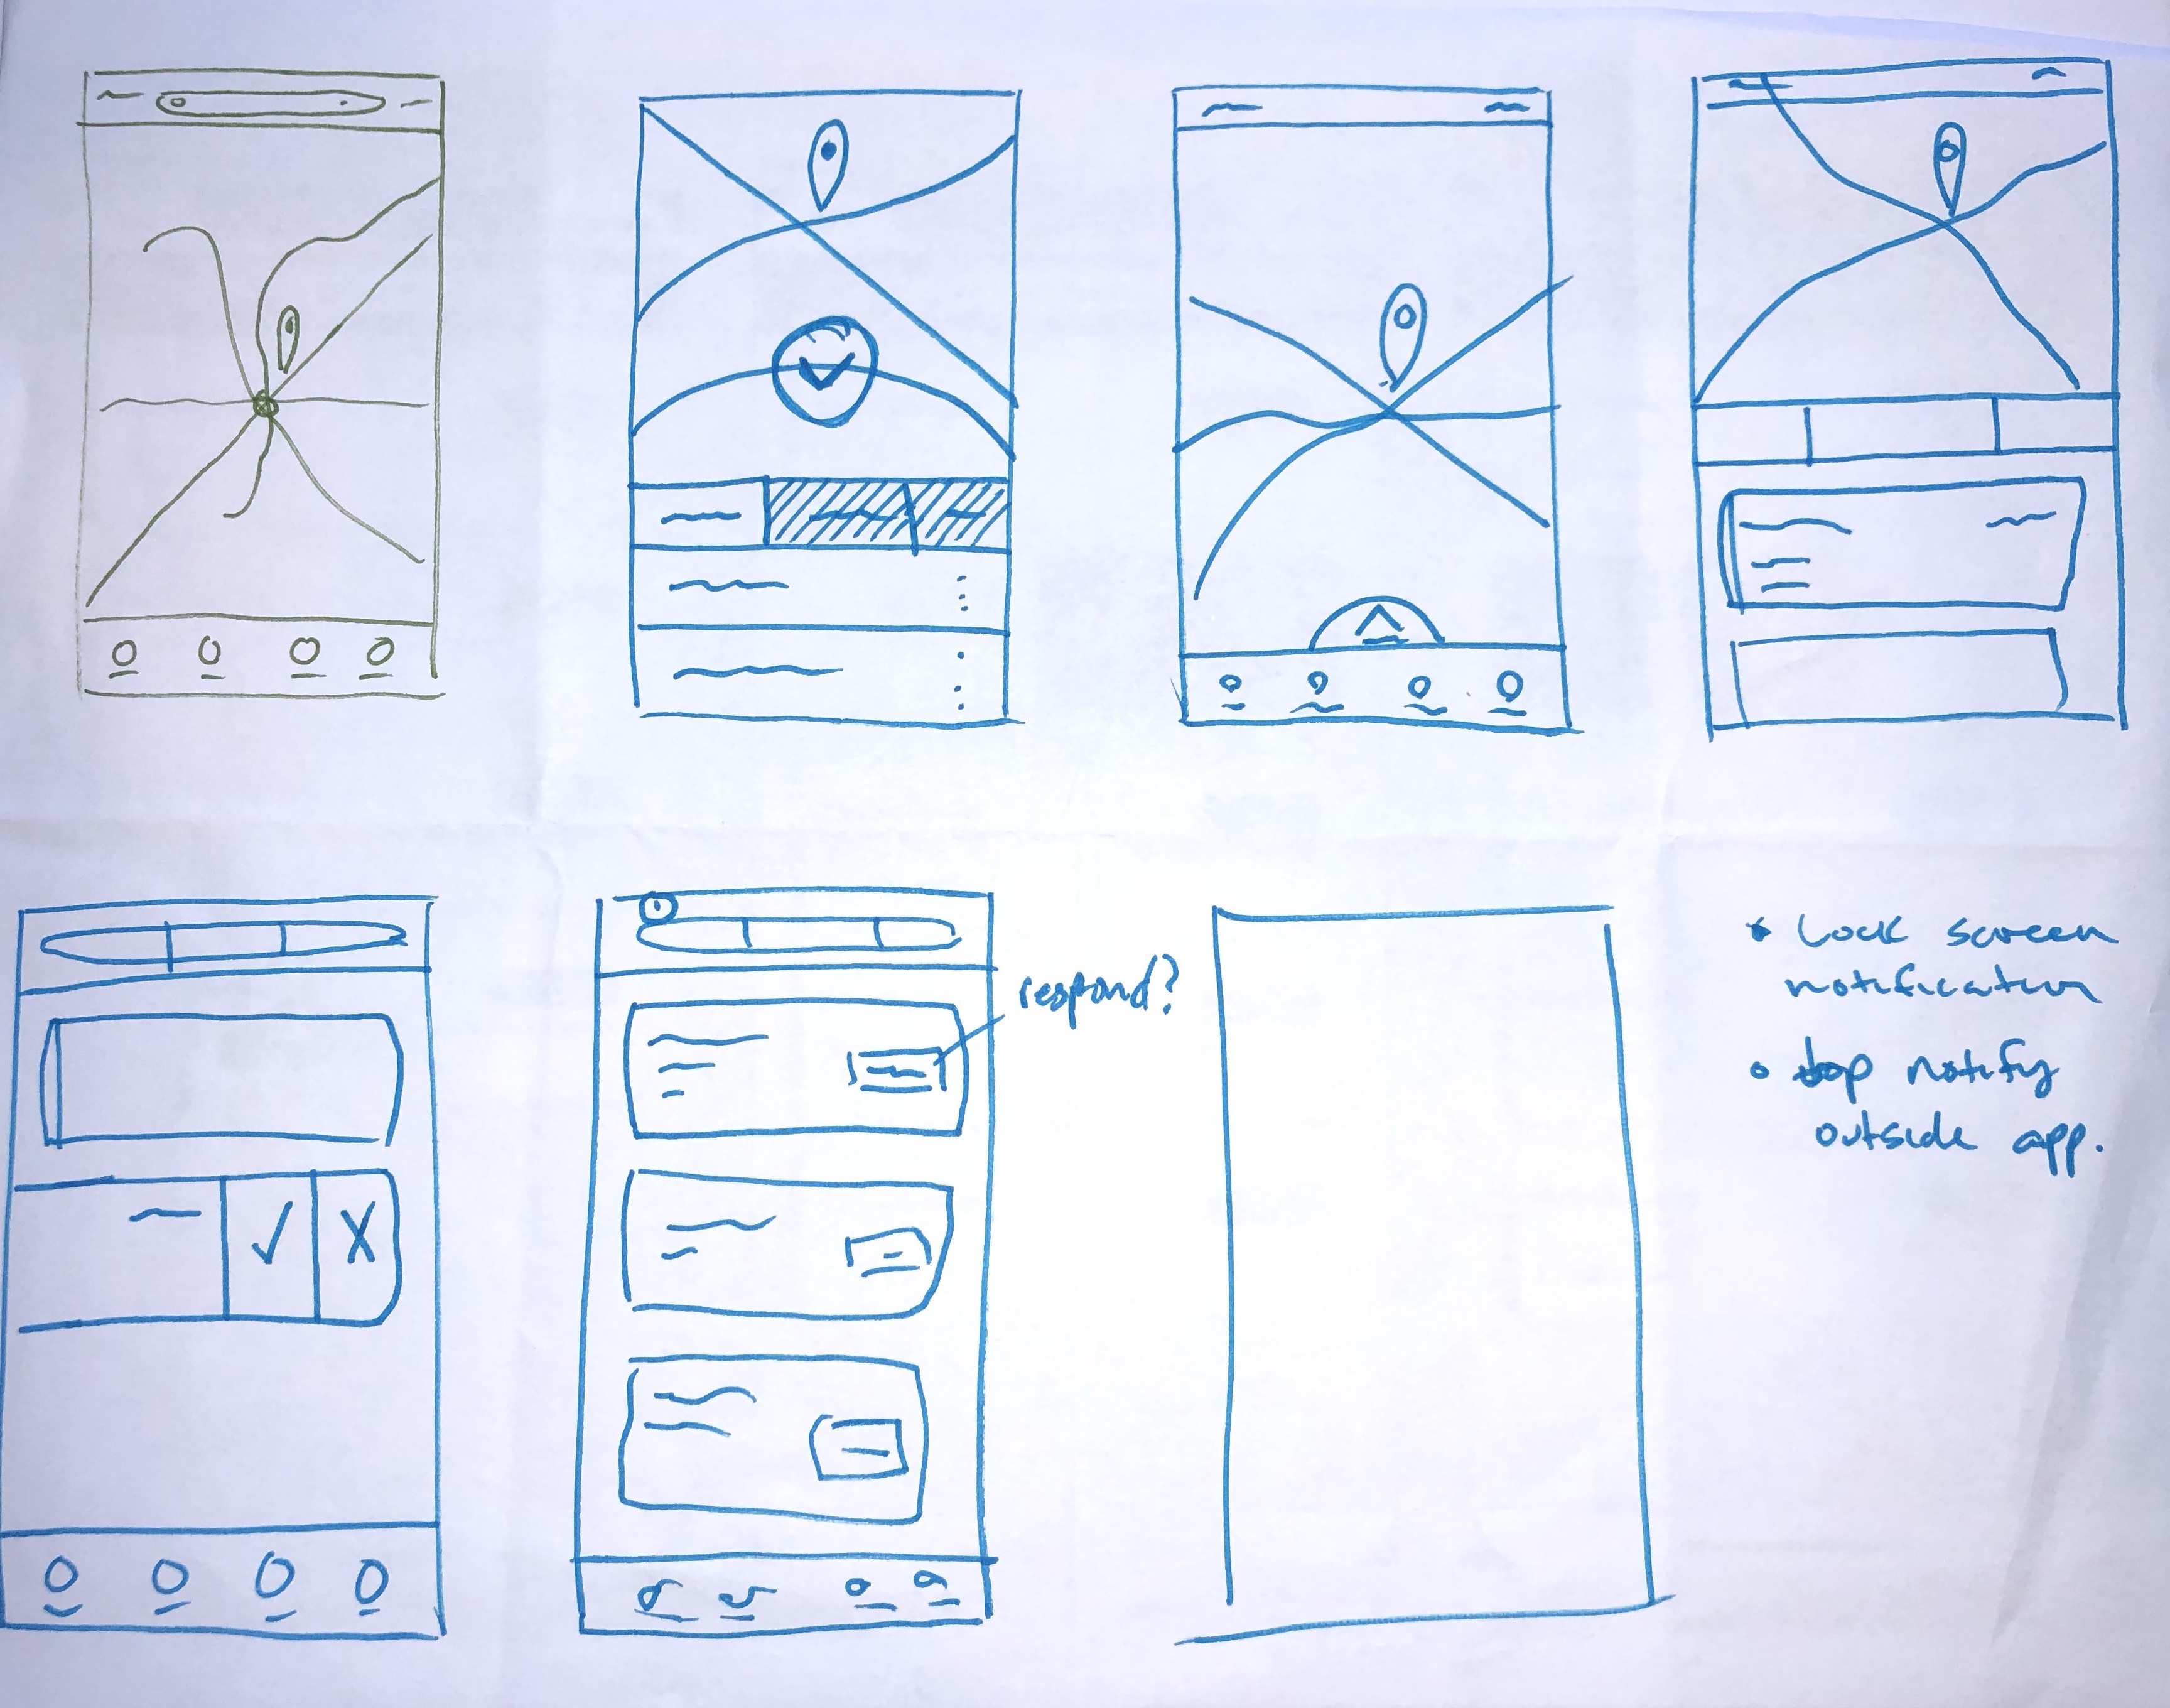 respond?
Lock screen
notification
top notify
outside app.